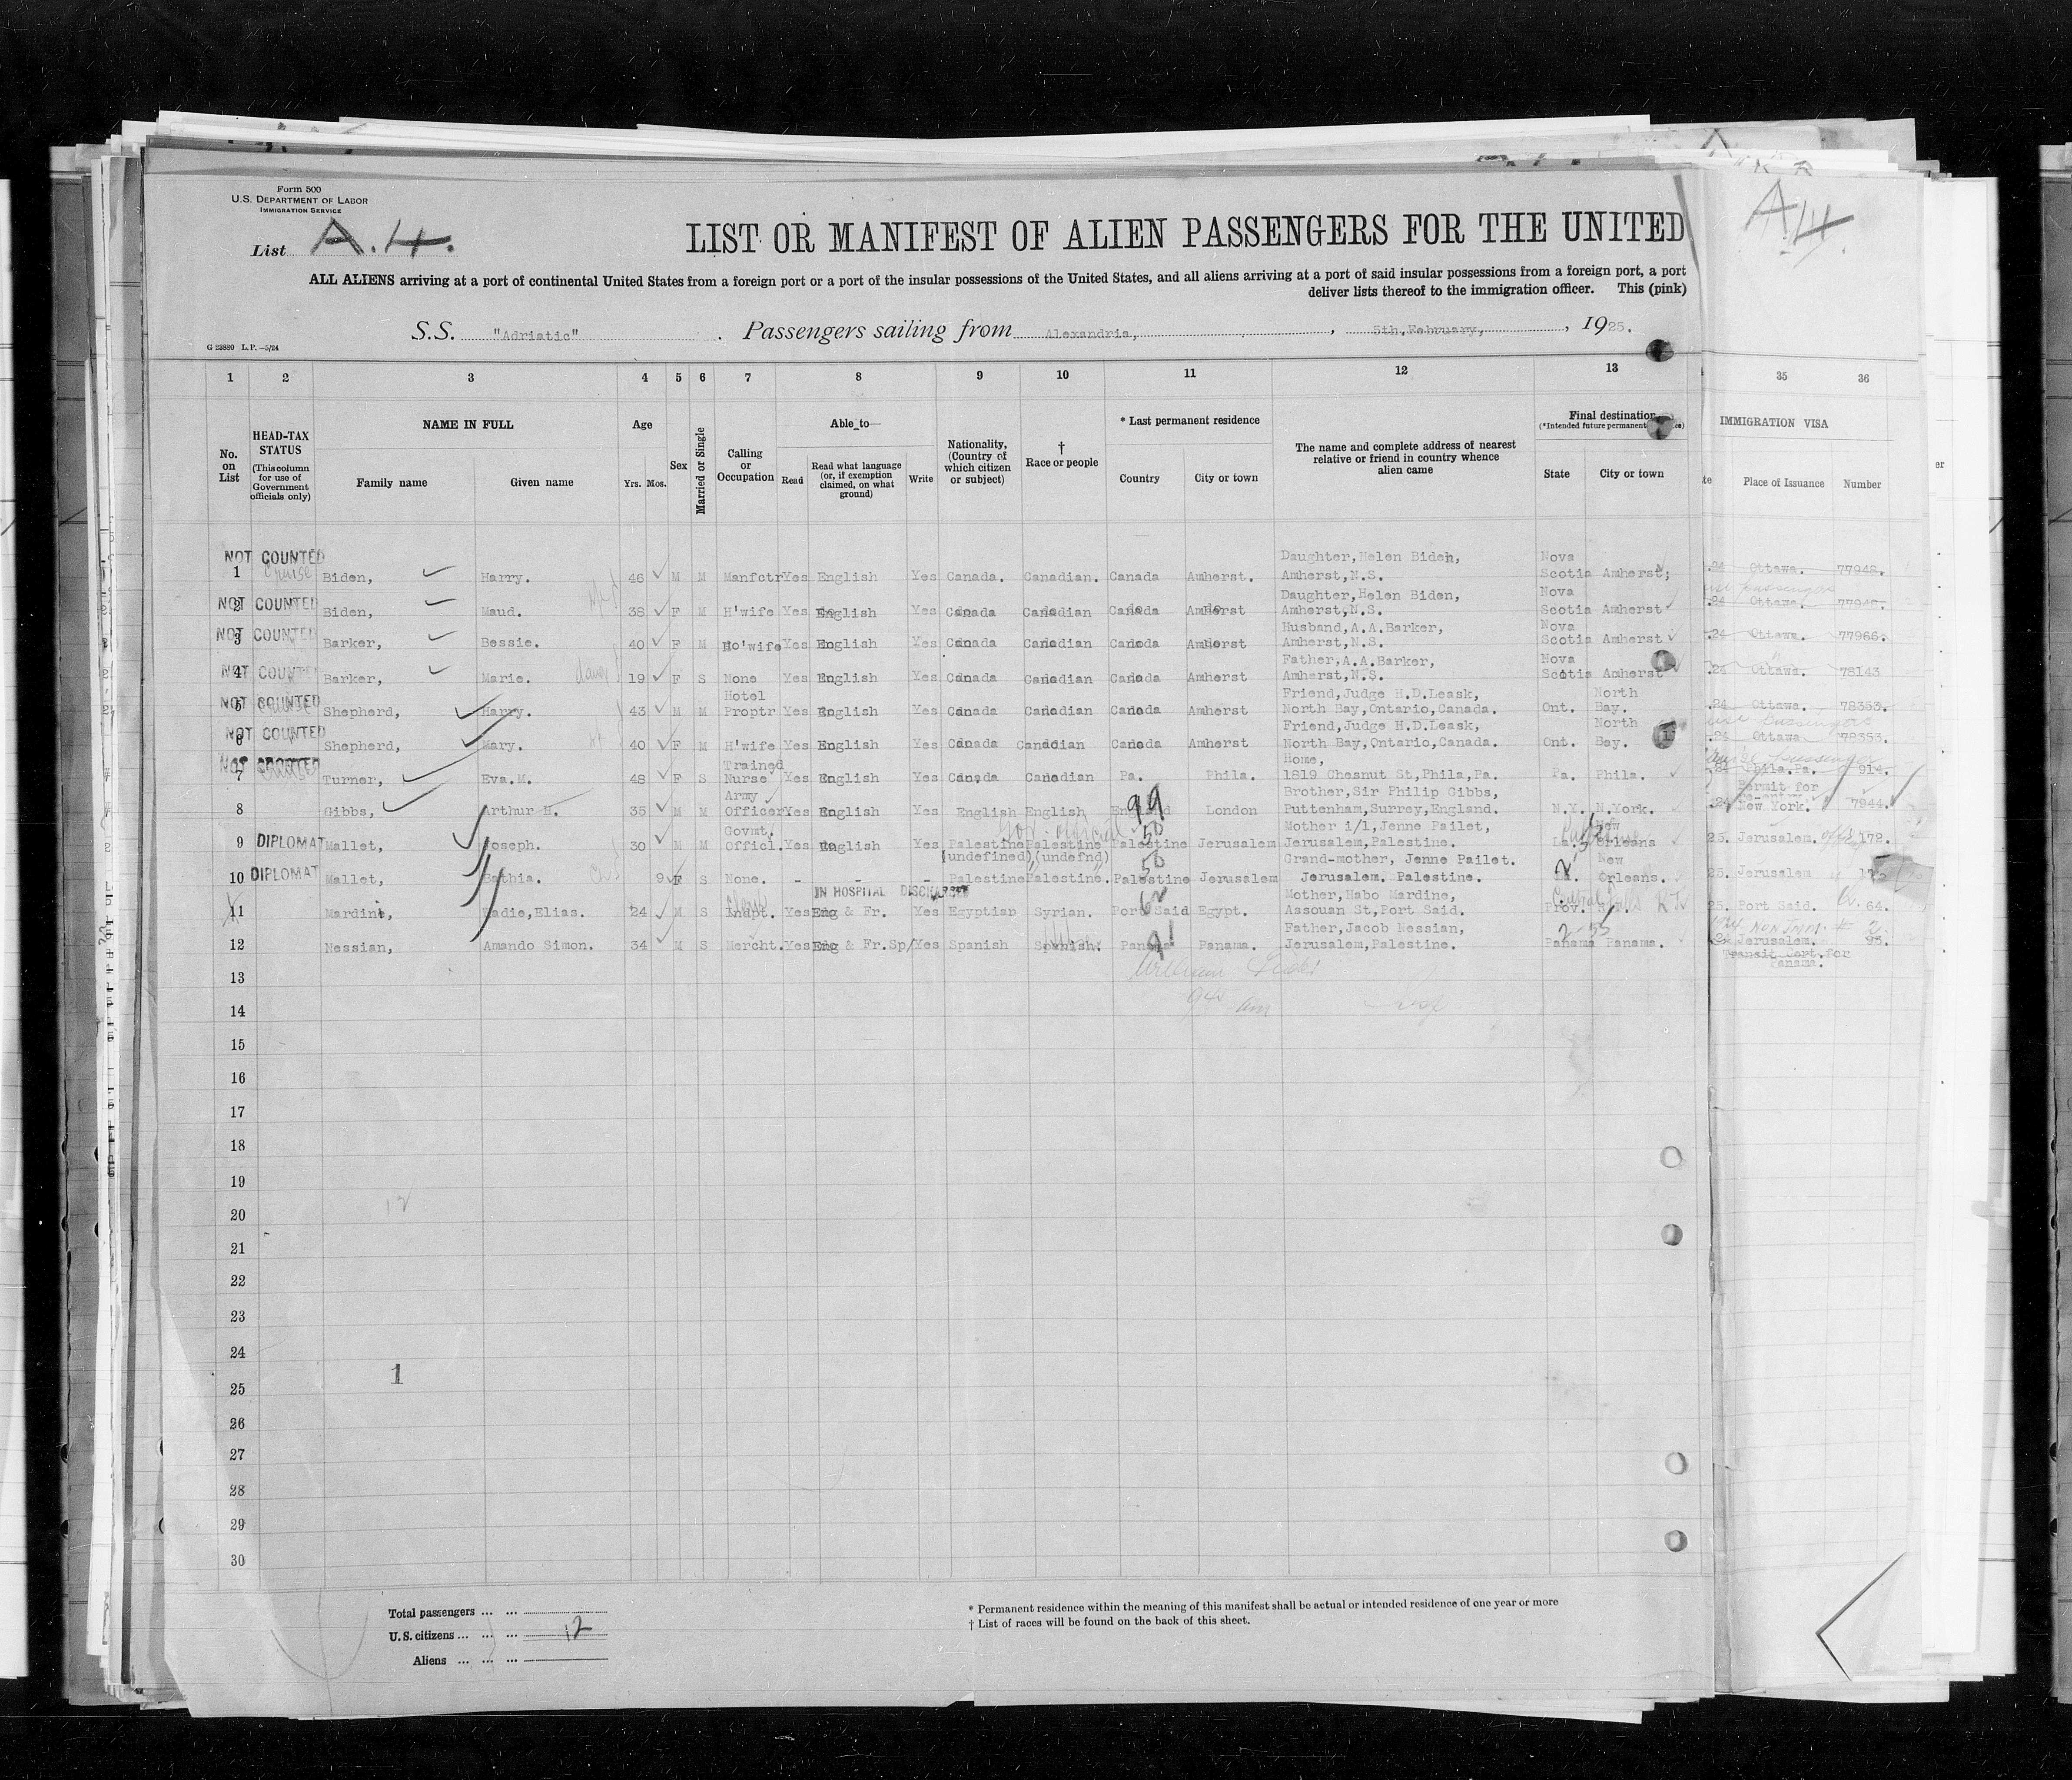 Form 500
U.S. DEPARTMENT OF LABOR
IMMIGRATION SERVICE
List A.4.
A4
LIST OR MANIFEST OF ALIEN PASSENGERS FOR THE UNITED
ALL ALIENS arriving at a port of continental United States from a foreign port or a port of the insular possessions of the United States, and all aliens arriving at a port of said insular possessions from a foreign port, a port
deliver lists thereof to the immigration officer. This (pink)
S.S. "Adriatic" . Passengers sailing from Alexandria, , 5th, February, , 1925.
G 23880 L.P.—5/24
1 2 3 4 5 6 7 8 9 10 11 12 13 35 36
No. on List
HEAD-TAX STATUS (This column for use of Government officials only)
NAME IN FULL
Family name Given name
Age
Yrs. Mos.
Sex
Married or Single
Calling or Occupation
Able to—
Read
Read what language (or, if exemption claimed, on what ground)
Write
Nationality, (Country of which citizen or subject)
† Race or people
* Last permanent residence
Country City or town
The name and complete address of nearest relative or friend in country whence alien came
Final destination
(*Intended future permanent
State City or town
IMMIGRATION VISA
Place of Issuance Number
NOT COUNTED Daughter, Helen Biden, Nova
1 Cruise Biden, Harry. 46 M M Manfctr Yes English Yes Canada. Canadian. Canada Amherst. Amherst, N.S. Scotia Amherst; .24 Ottawa. 77948.
NOT COUNTED Daughter, Helen Biden, Nova
2 Biden, Maud. 38 F M H'wife Yes English Yes Canada Canadian Canada Amherst Amherst, N.S. Scotia Amherst .24 Ottawa. 77948.
NOT COUNTED Husband, A.A.Barker, Nova
3 Barker, Bessie. 40 F M Ho'wife Yes English Yes Canada Canadian Canada Amherst Amherst, N.S. Scotia Amherst .24 Ottawa. 77966.
NOT COUNTED Father, A.A.Barker, Nova
4 Barker, Marie. 19 F S None Yes English Yes Canada Canadian Canada Amherst Amherst, N.S. Scotia Amherst .24 Ottawa. 78143
NOT COUNTED Hotel Friend, Judge H.D.Leask, North
5 Shepherd, Harry. 43 M M Proptr Yes English Yes Canada Canadian Canada Amherst North Bay, Ontario, Canada. Ont. Bay. .24 Ottawa. 78353.
NOT COUNTED Friend, Judge H.D.Leask, North
6 Shepherd, Mary. 40 F M H'wife Yes English Yes Canada Canadian Canada Amherst North Bay, Ontario, Canada. Ont. Bay. .24 Ottawa 78353.
NOT COUNTED Trained Home,
7 Turner, Eva.M. 48 F S Nurse Yes English Yes Canada Canadian Pa. Phila. 1819 Chesnut St, Phila, Pa. Pa. Phila. .24 Phila.Pa. 914.
Army Brother, Sir Philip Gibbs, Permit for
8 Gibbs, Arthur H. 35 M M Officer Yes English Yes English English England 99 London Puttenham, Surrey, England. N.Y. N.York. .24 New York. 7944.
Govmt. Mother i/l, Jenne Pailet, New
9 DIPLOMAT Mallet, Joseph. 30 M M Officl. Yes English Yes Palestine Palestine Palestine 50 Jerusalem Jerusalem, Palestine. La. Orleans 25. Jerusalem. 172.
(undefined) (undefnd) Grand-mother, Jenne Pailet. New
10 DIPLOMAT Mallet, Bathia. 9 F S None. - - - Palestine Palestine. Palestine 50 Jerusalem Jerusalem. Palestine. Orleans. 25. Jerusalem
IN HOSPITAL DISCHARGED Mother, Habo Mardine,
11 Mardini, Eadie, Elias. 24 M S Indpt. Yes Eng & Fr. Yes Egyptian Syrian. Port Said Egypt. Assouan St, Port Said. Prov. 25. Port Said. 64.
Father, Jacob Nessian,
12 Nessian, Amando Simon. 34 M S Mercht. Yes Eng & Fr.Sp/ Yes Spanish Spanish. Panama Panama. Jerusalem, Palestine. Panama Panama. Jerusalem. 93.
Transit Cert. for
Panama.
13
14
15
16
17
18
19
20
21
22
23
24
1
25
26
27
28
29
30
Total passengers ... ...
U.S. citizens ... ... ... 12
Aliens ... ... ...
* Permanent residence within the meaning of this manifest shall be actual or intended residence of one year or more
† List of races will be found on the back of this sheet.